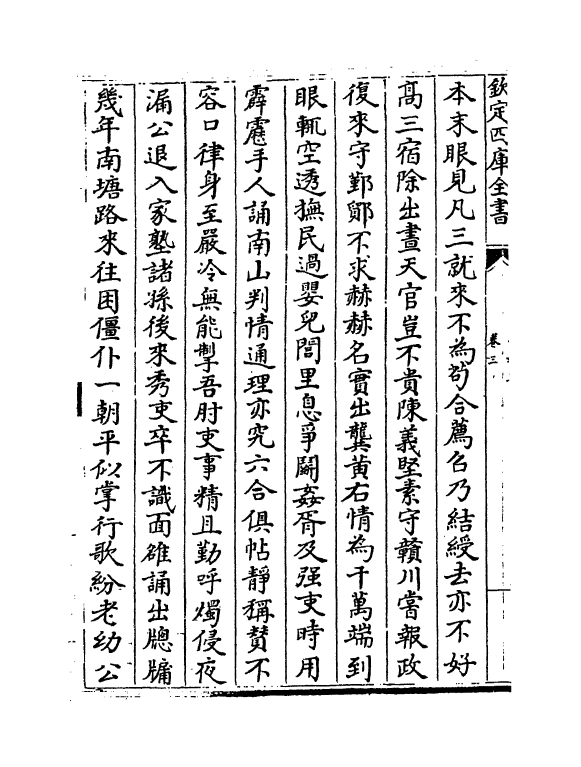 欽定四庫全書
卷三
本末眼見凡三就來不為茍合薦召乃結綬去亦不好
髙三宿除出晝天官豈不貴陳義堅素守贛川嘗報政
復來守鄞鄮不求赫赫名實出龔黄右情為千萬端到
眼輒空透撫民過嬰兒閭里息爭鬭姦胥及强吏時用
霹靂手人誦南山判情通理亦究六合俱帖靜稱賛不
容口律身至嚴冷無能掣吾肘吏事精且勤呼燭侵夜
漏公退入家塾諸孫後來秀吏卒不識面雒誦出牎牖
幾年南塘路來往困僵仆一朝平似掌行歌紛老幼公